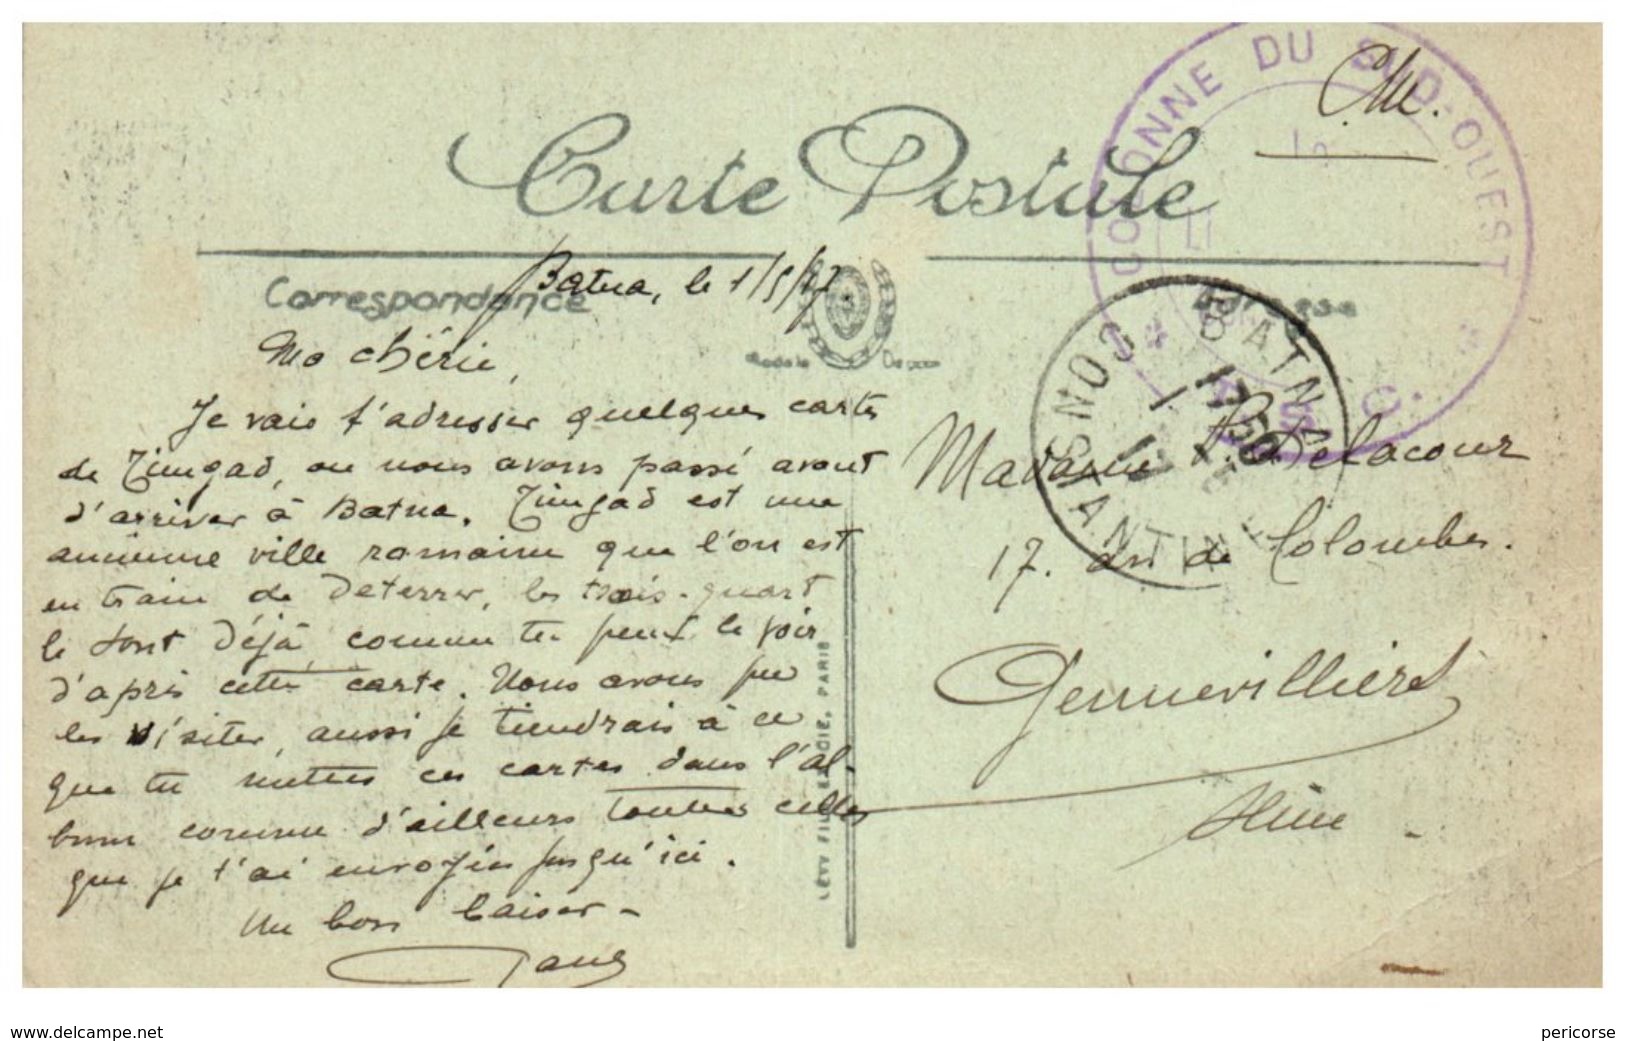 COLONNE DU SUD-OUEST
C.M.
Carte Postale
Correspondance
Adresse
Batna, le 1/5/17.
Ma chérie,
Je vais t'adresser quelques cartes
de Timgad, ou nous avons passé avant
d'arriver à Batna. Timgad est une
ancienne ville romaine que l'on est
en train de déterrer, les trois-quart
le sont déjà, comme tu peux le voir
d'après cette carte. Nous avons pu
les visiter, aussi je tiendrais à ce
que tu mettes ces cartes dans l'al-
bum comme d'ailleurs toutes celles
que je t'ai envoyées jusqu'ici.
Un bon baiser -
BATNA
CONSTANTINE
Madame P. Delacour
17. de Colombes.
Gennevilliers
Seine -
LÉVY FILS & CIE, PARIS
www.delcampe.net
pericorse